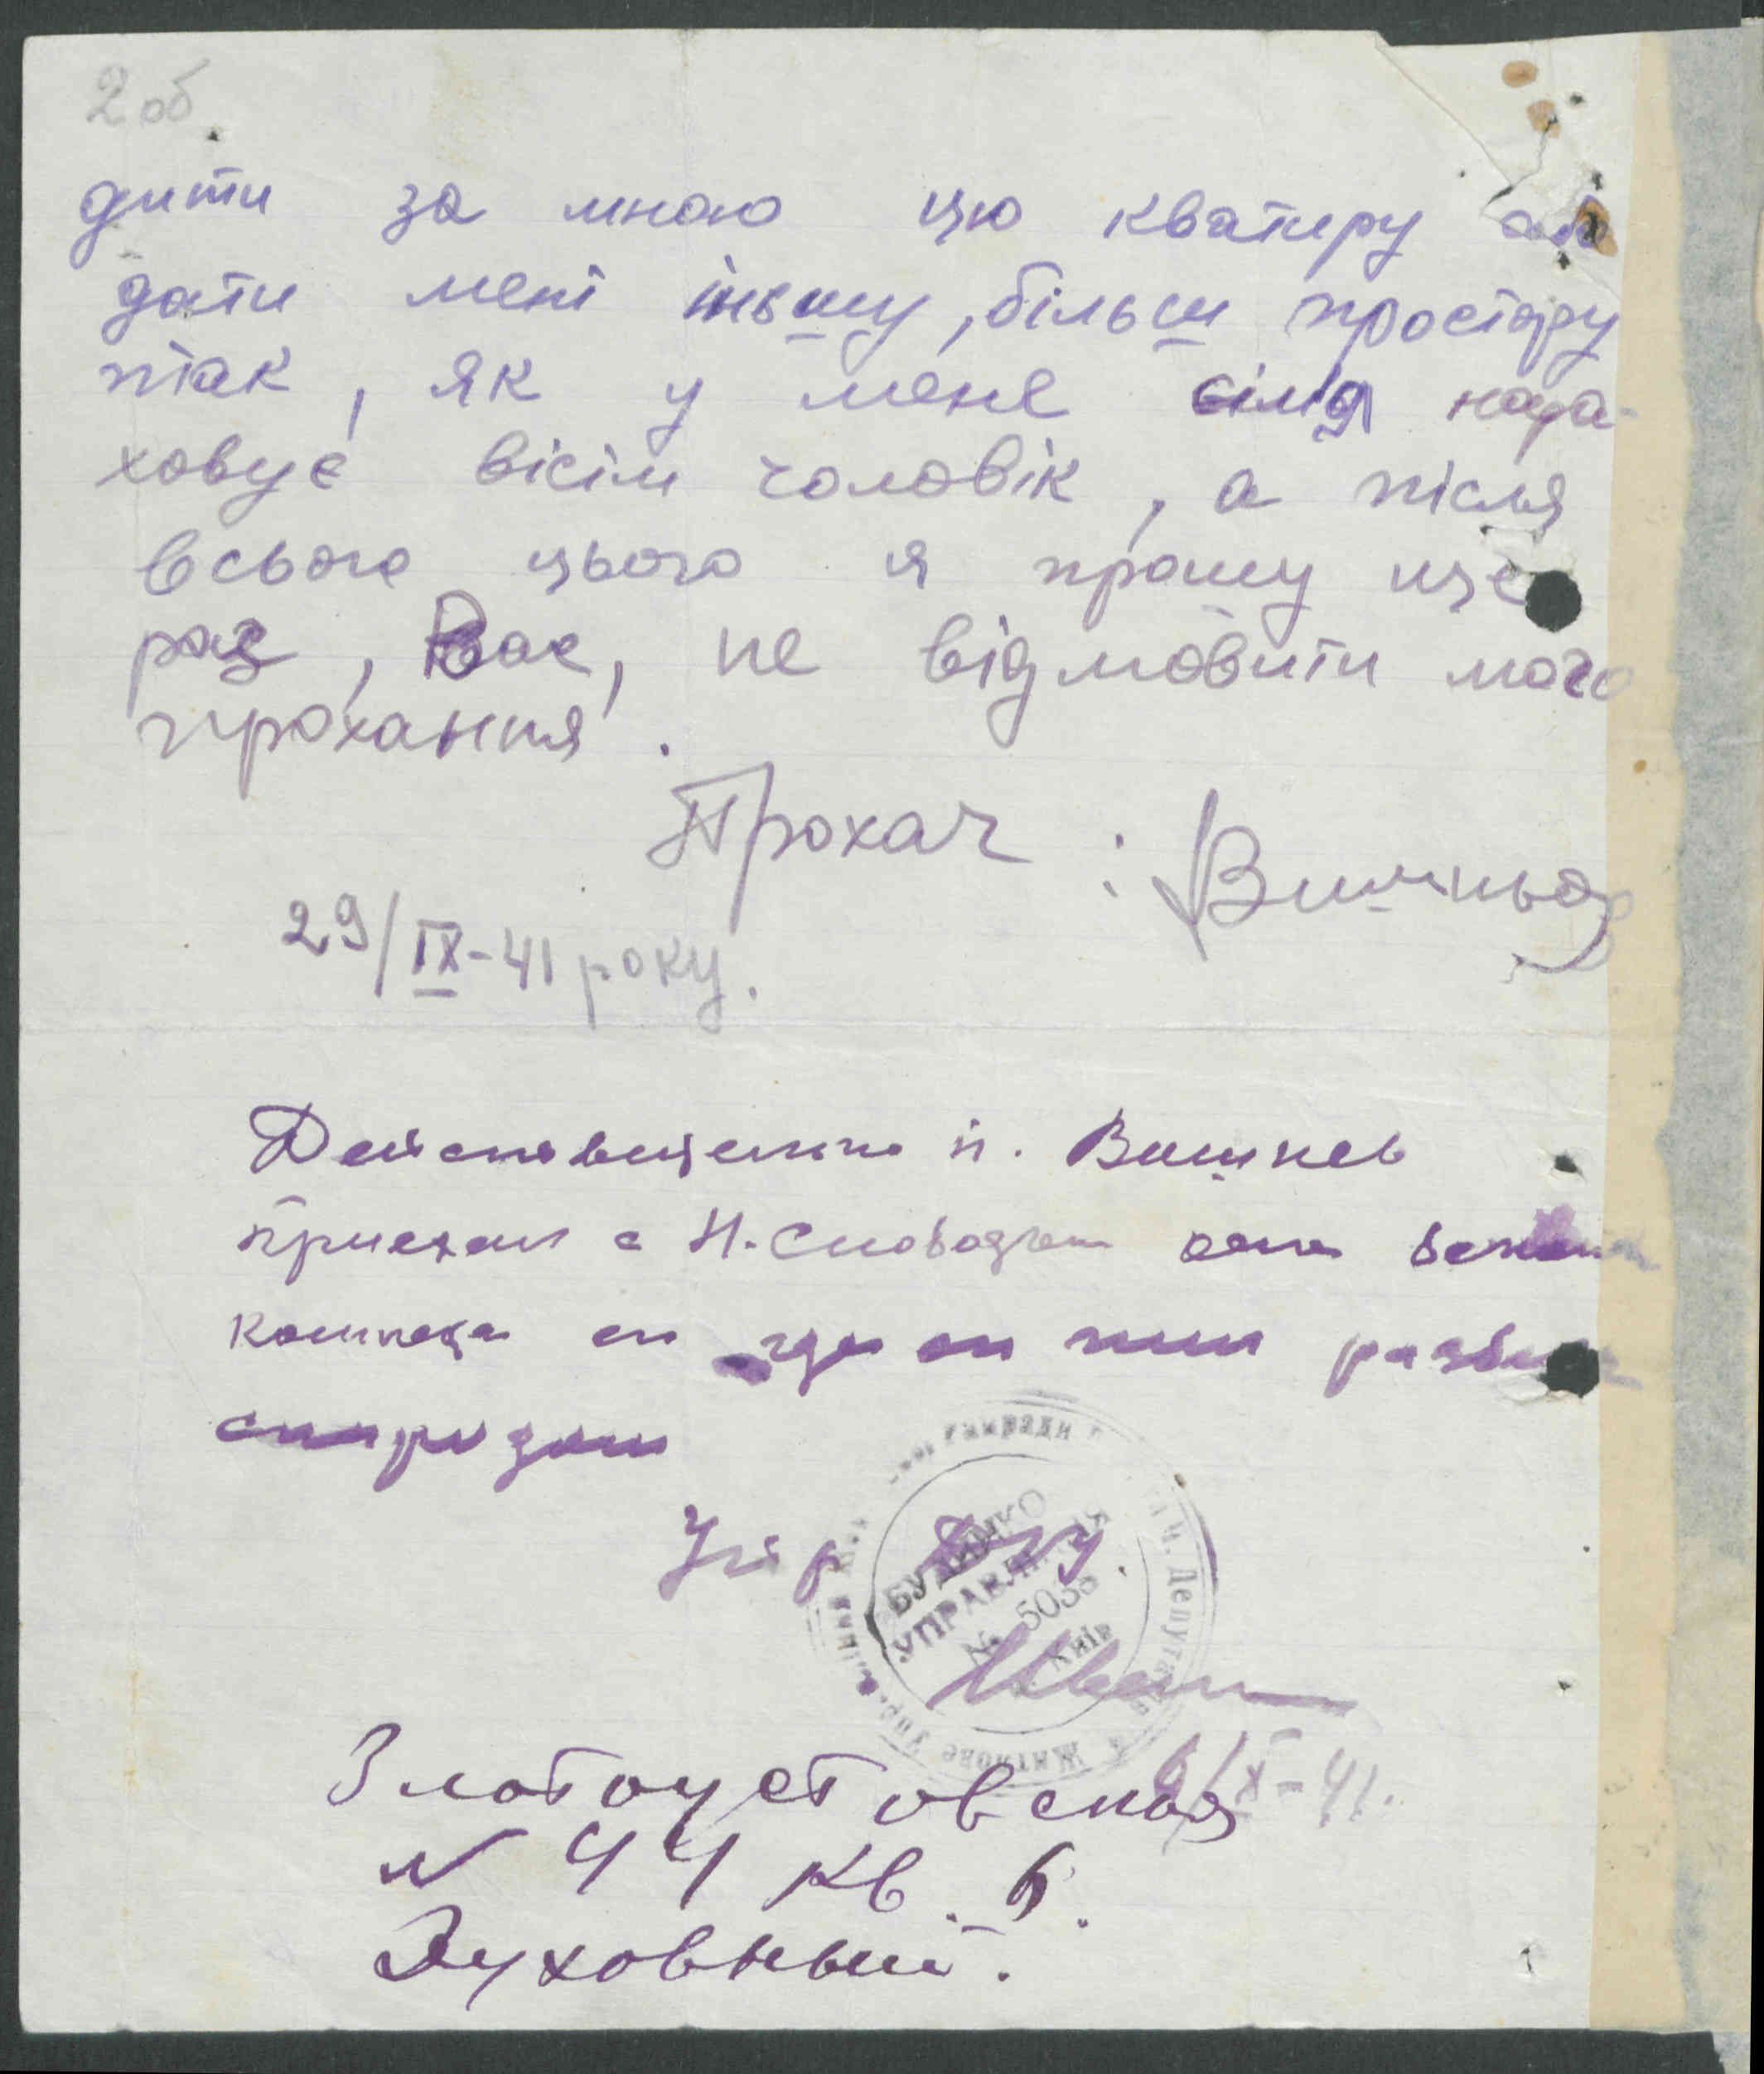 2 об
дити за мною цю кватиру або
дати мені іньшу, більш простору
так, як у мене сімя нара-
ховує вісім чоловік, а після
всього цього я прошу ще
раз, Вас, не відмовити мого
прохання.
Прохач : Вишньов
29/IX-41 року.
Действительно п. Вишнев
приехал с Н. Слободки
комната
Упр
БУДИНКО
УПРАВЛІННЯ
№ 503
Київ
Златоустовская
/X-41.
N 44 кв. 6.
Духовный.